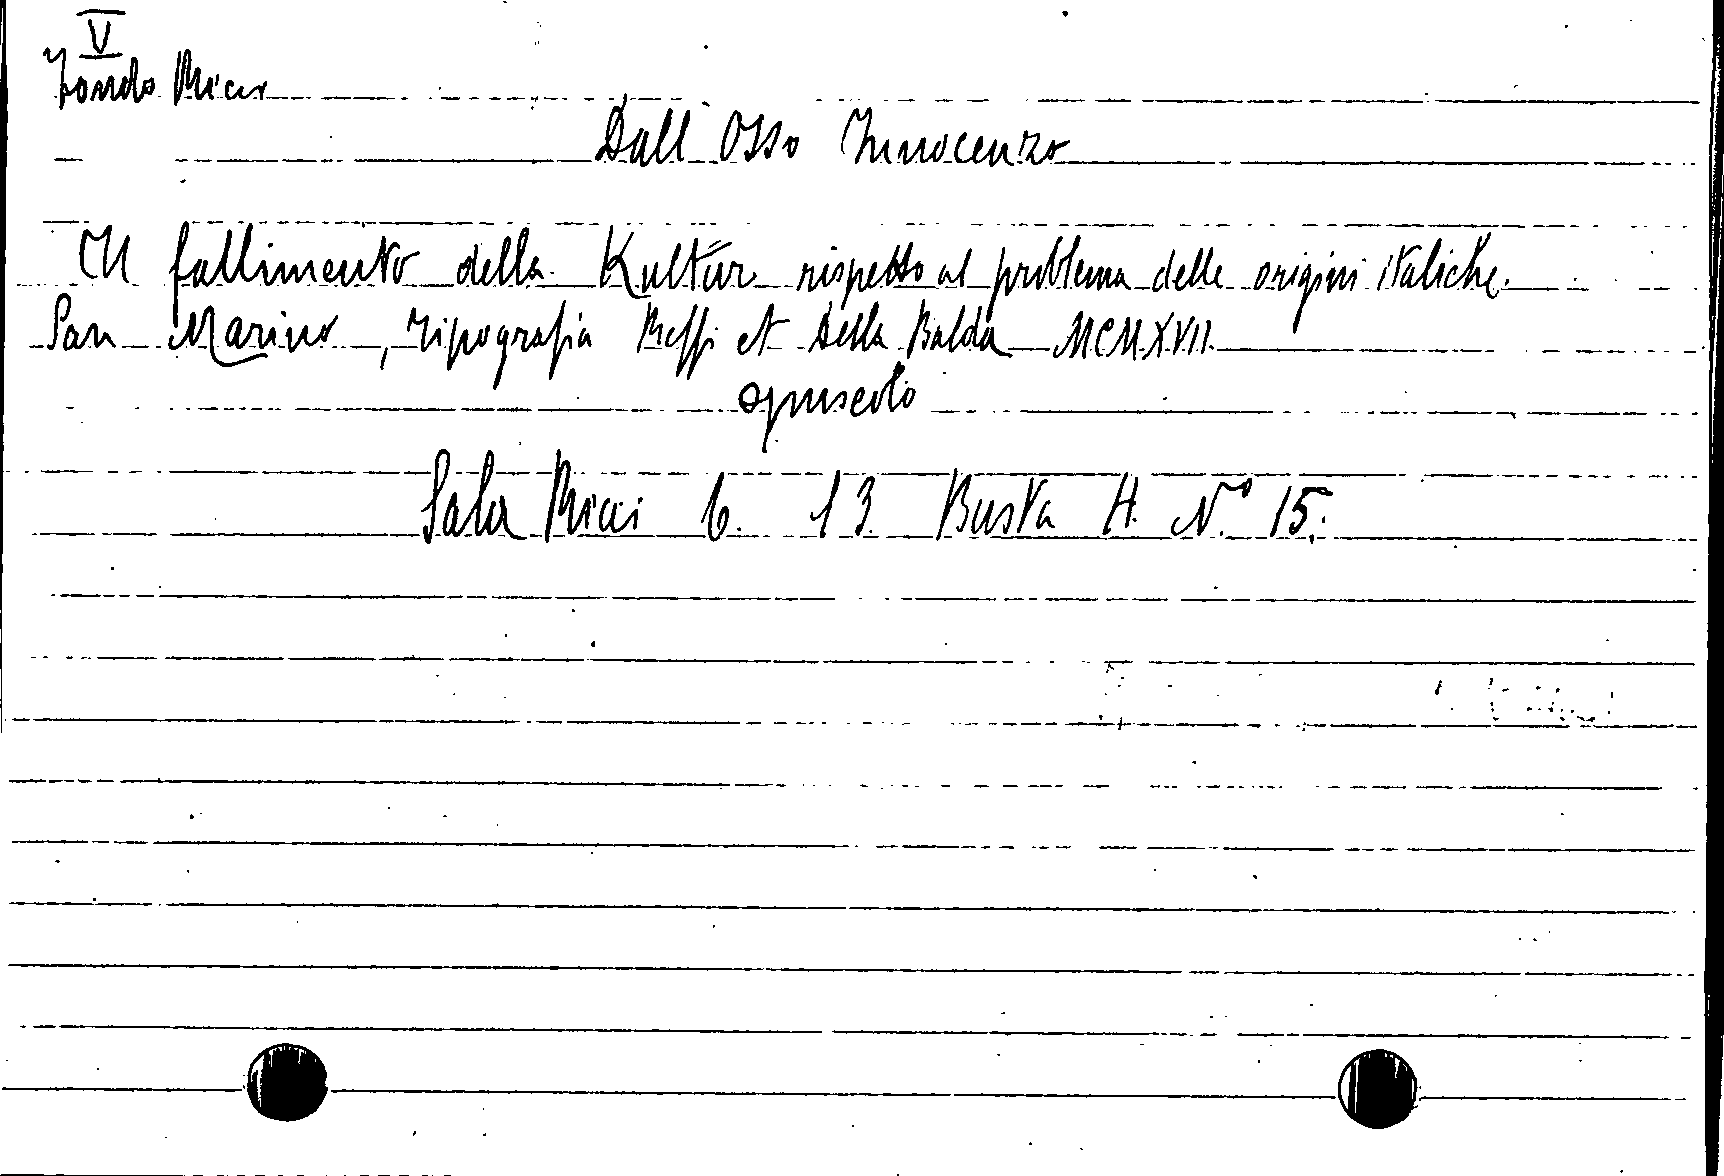 V
Fondo Ricci
Dall'Osso Innocenzo
Il fallimento della Kultur rispetto al problema delle origini italiche.
San Marino, tipografia Reffi et Della Balda MCMXVII.
opuscolo
Sala Ricci 6. 13. Busta H. N.° 15.